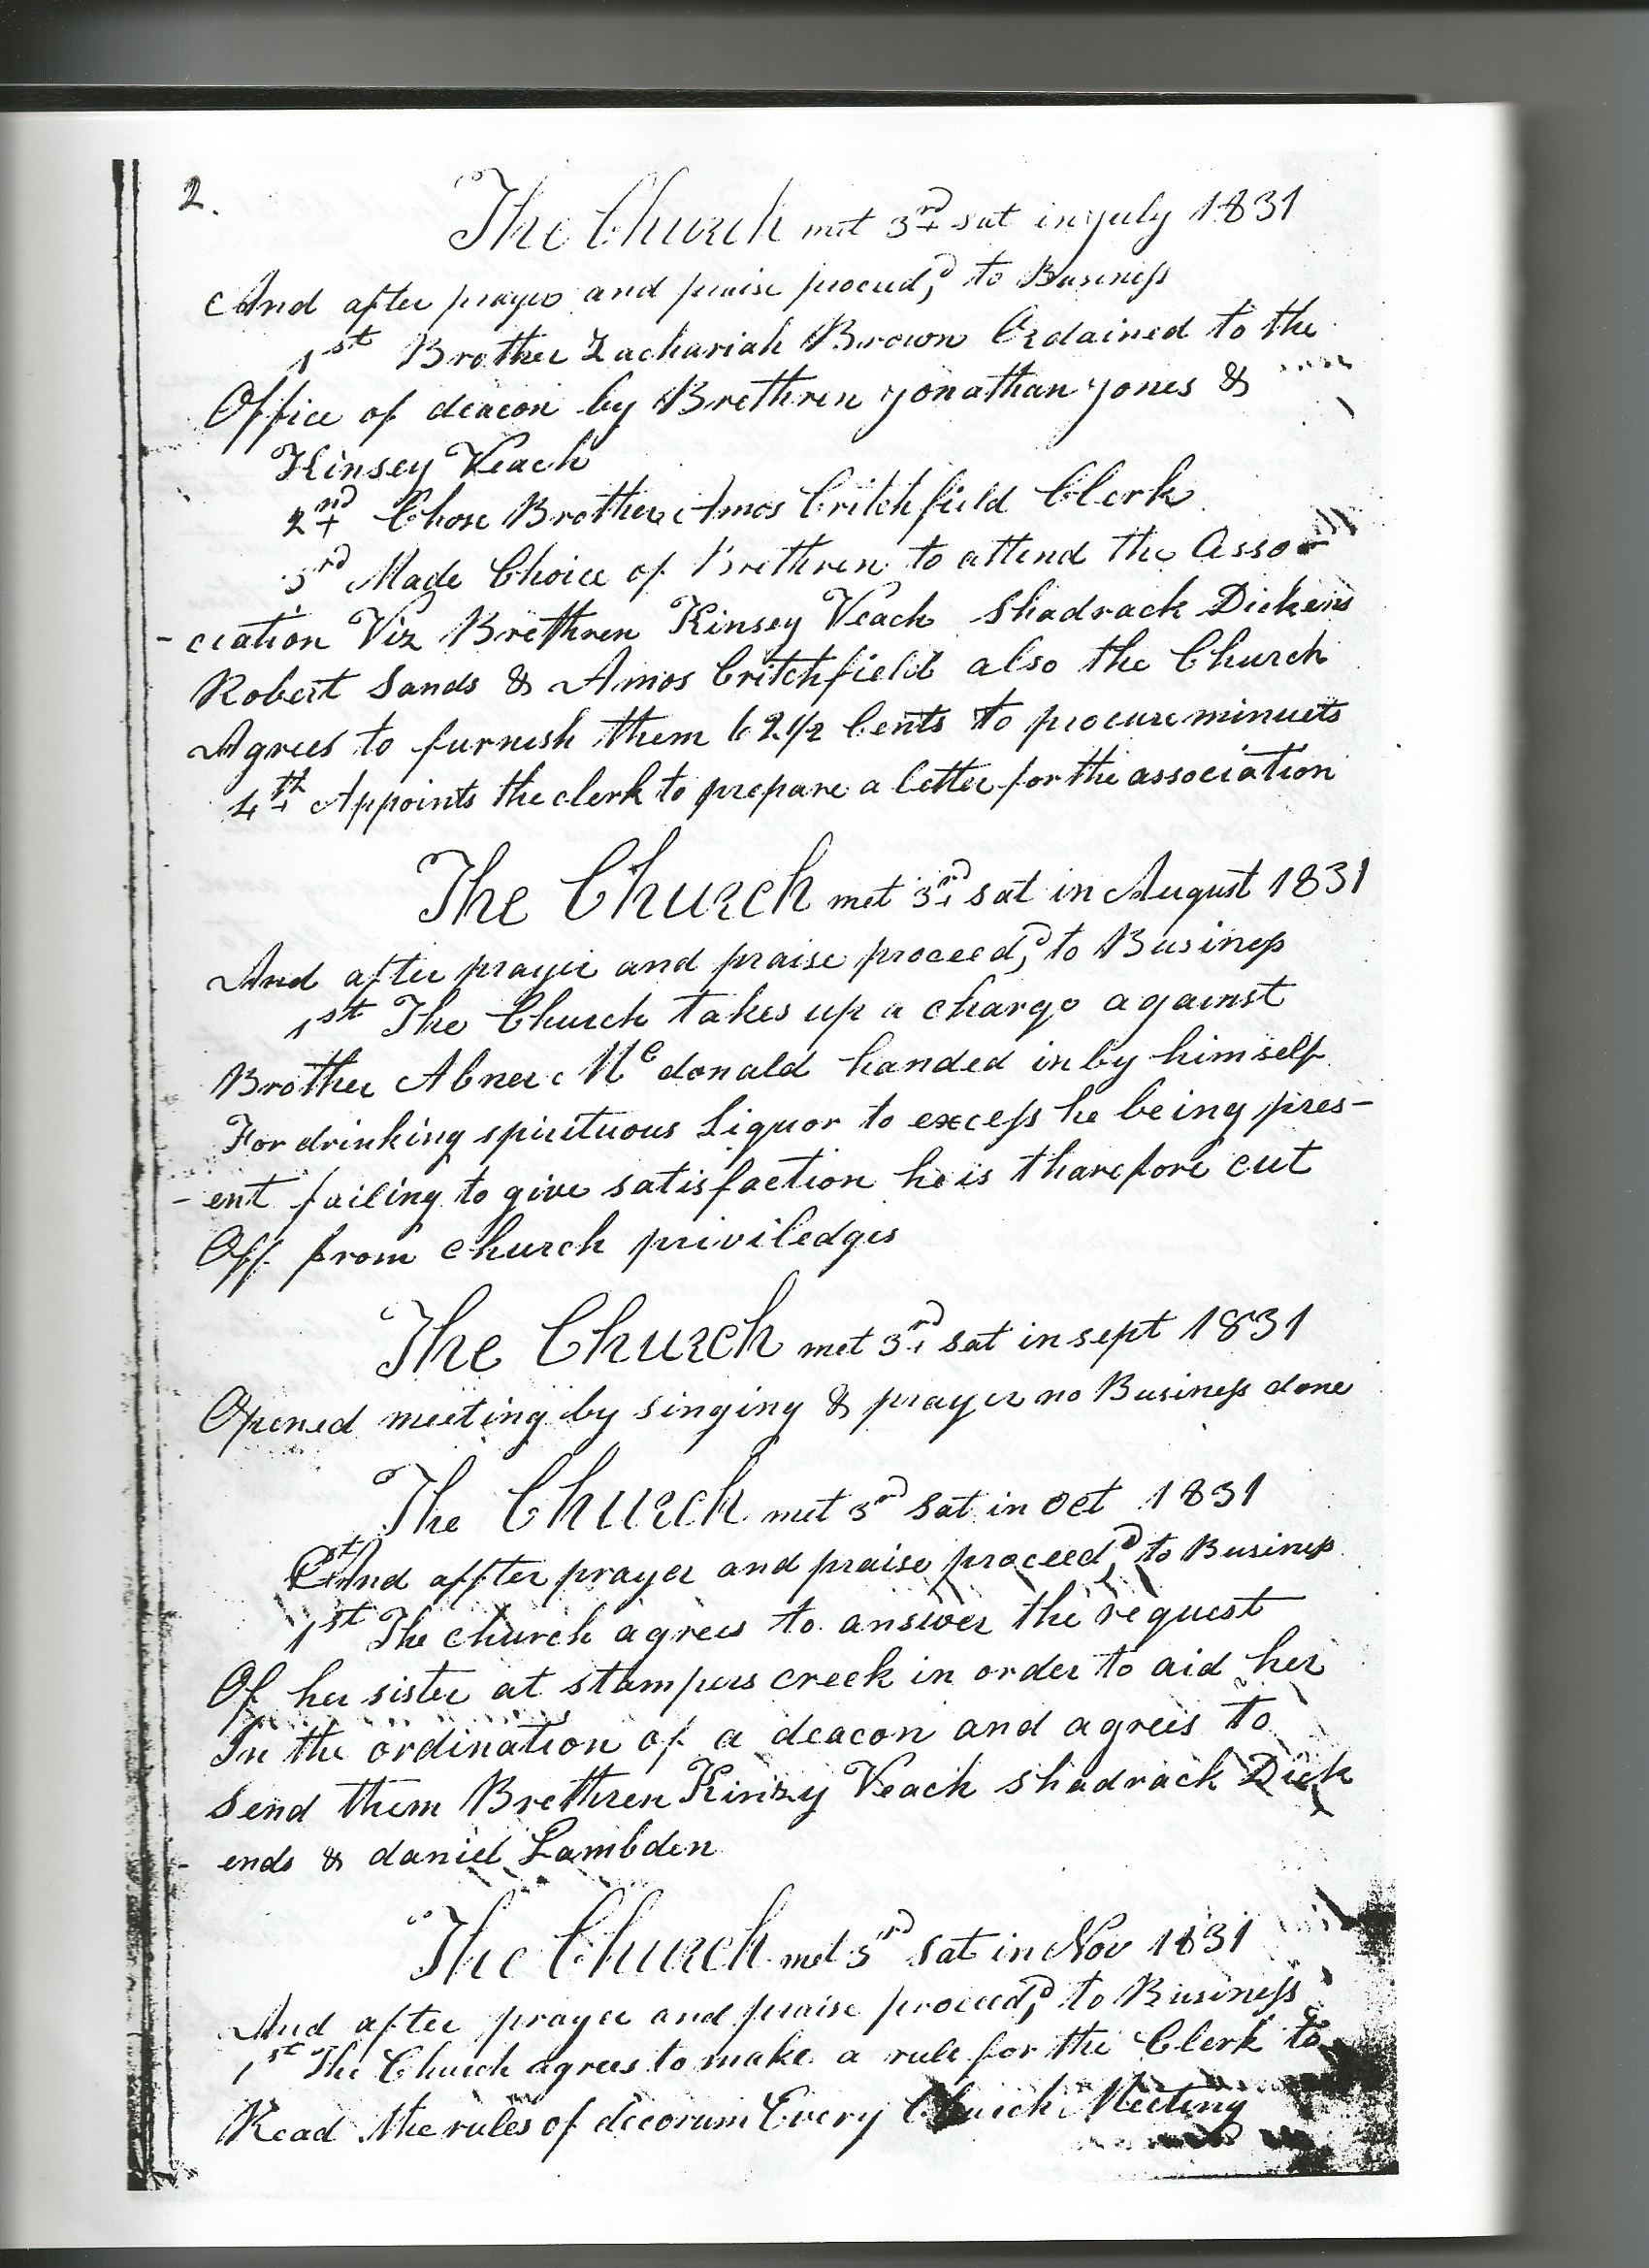 2.
The Church met 3rd sat in july 1831
And after prayer and praise proceed,d to Business
1st Brother Zachariah Brown Ordained to the
Office of deacon by Brethren jonathan jones &
Kinsey Veach
2nd Chose Brother Amos Critchfield Clerk
3rd Made Choice of Brethren to attend the Asso-
-ciation Viz Brethren Kinsey Veach Shadrack Dickens
Robert Sands & Amos Critchfield also the Church
Agrees to furnish them 62 1/2 Cents to procure minuets
4th Appoints the clerk to prepare a letter for the association
The Church met 3rd sat in August 1831
And after prayer and praise proceed,d to Business
1st The Church takes up a charge against
Brother Abner Mcdonald handed in by himself
For drinking spirituous Liquor to excess he being pres-
-ent failing to give satisfaction he is tharefore cut
Off from church priviledges
The Church met 3rd sat in sept 1831
Opened meeting by singing & prayer no Business done
The Church met 3rd sat in Oct 1831
And affter prayer and praise proceed,d to Business
1st The church agrees to answer the request
Of her sister at stampers creek in order to aid her
In the ordination of a deacon and agrees to
Send them Brethren Kinzy Veach shadrack Dick
-ends & daniel Lambden
The Church met 3rd sat in Nov 1831
And after prayer and praise proceed,d to Business
1st The Church agrees to make a rule for the Clerk to
Read the rules of decorum Every Church Meeting